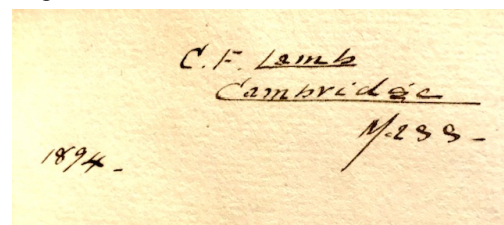 C. F. Lamb
Cambridge
Mass-
1894-